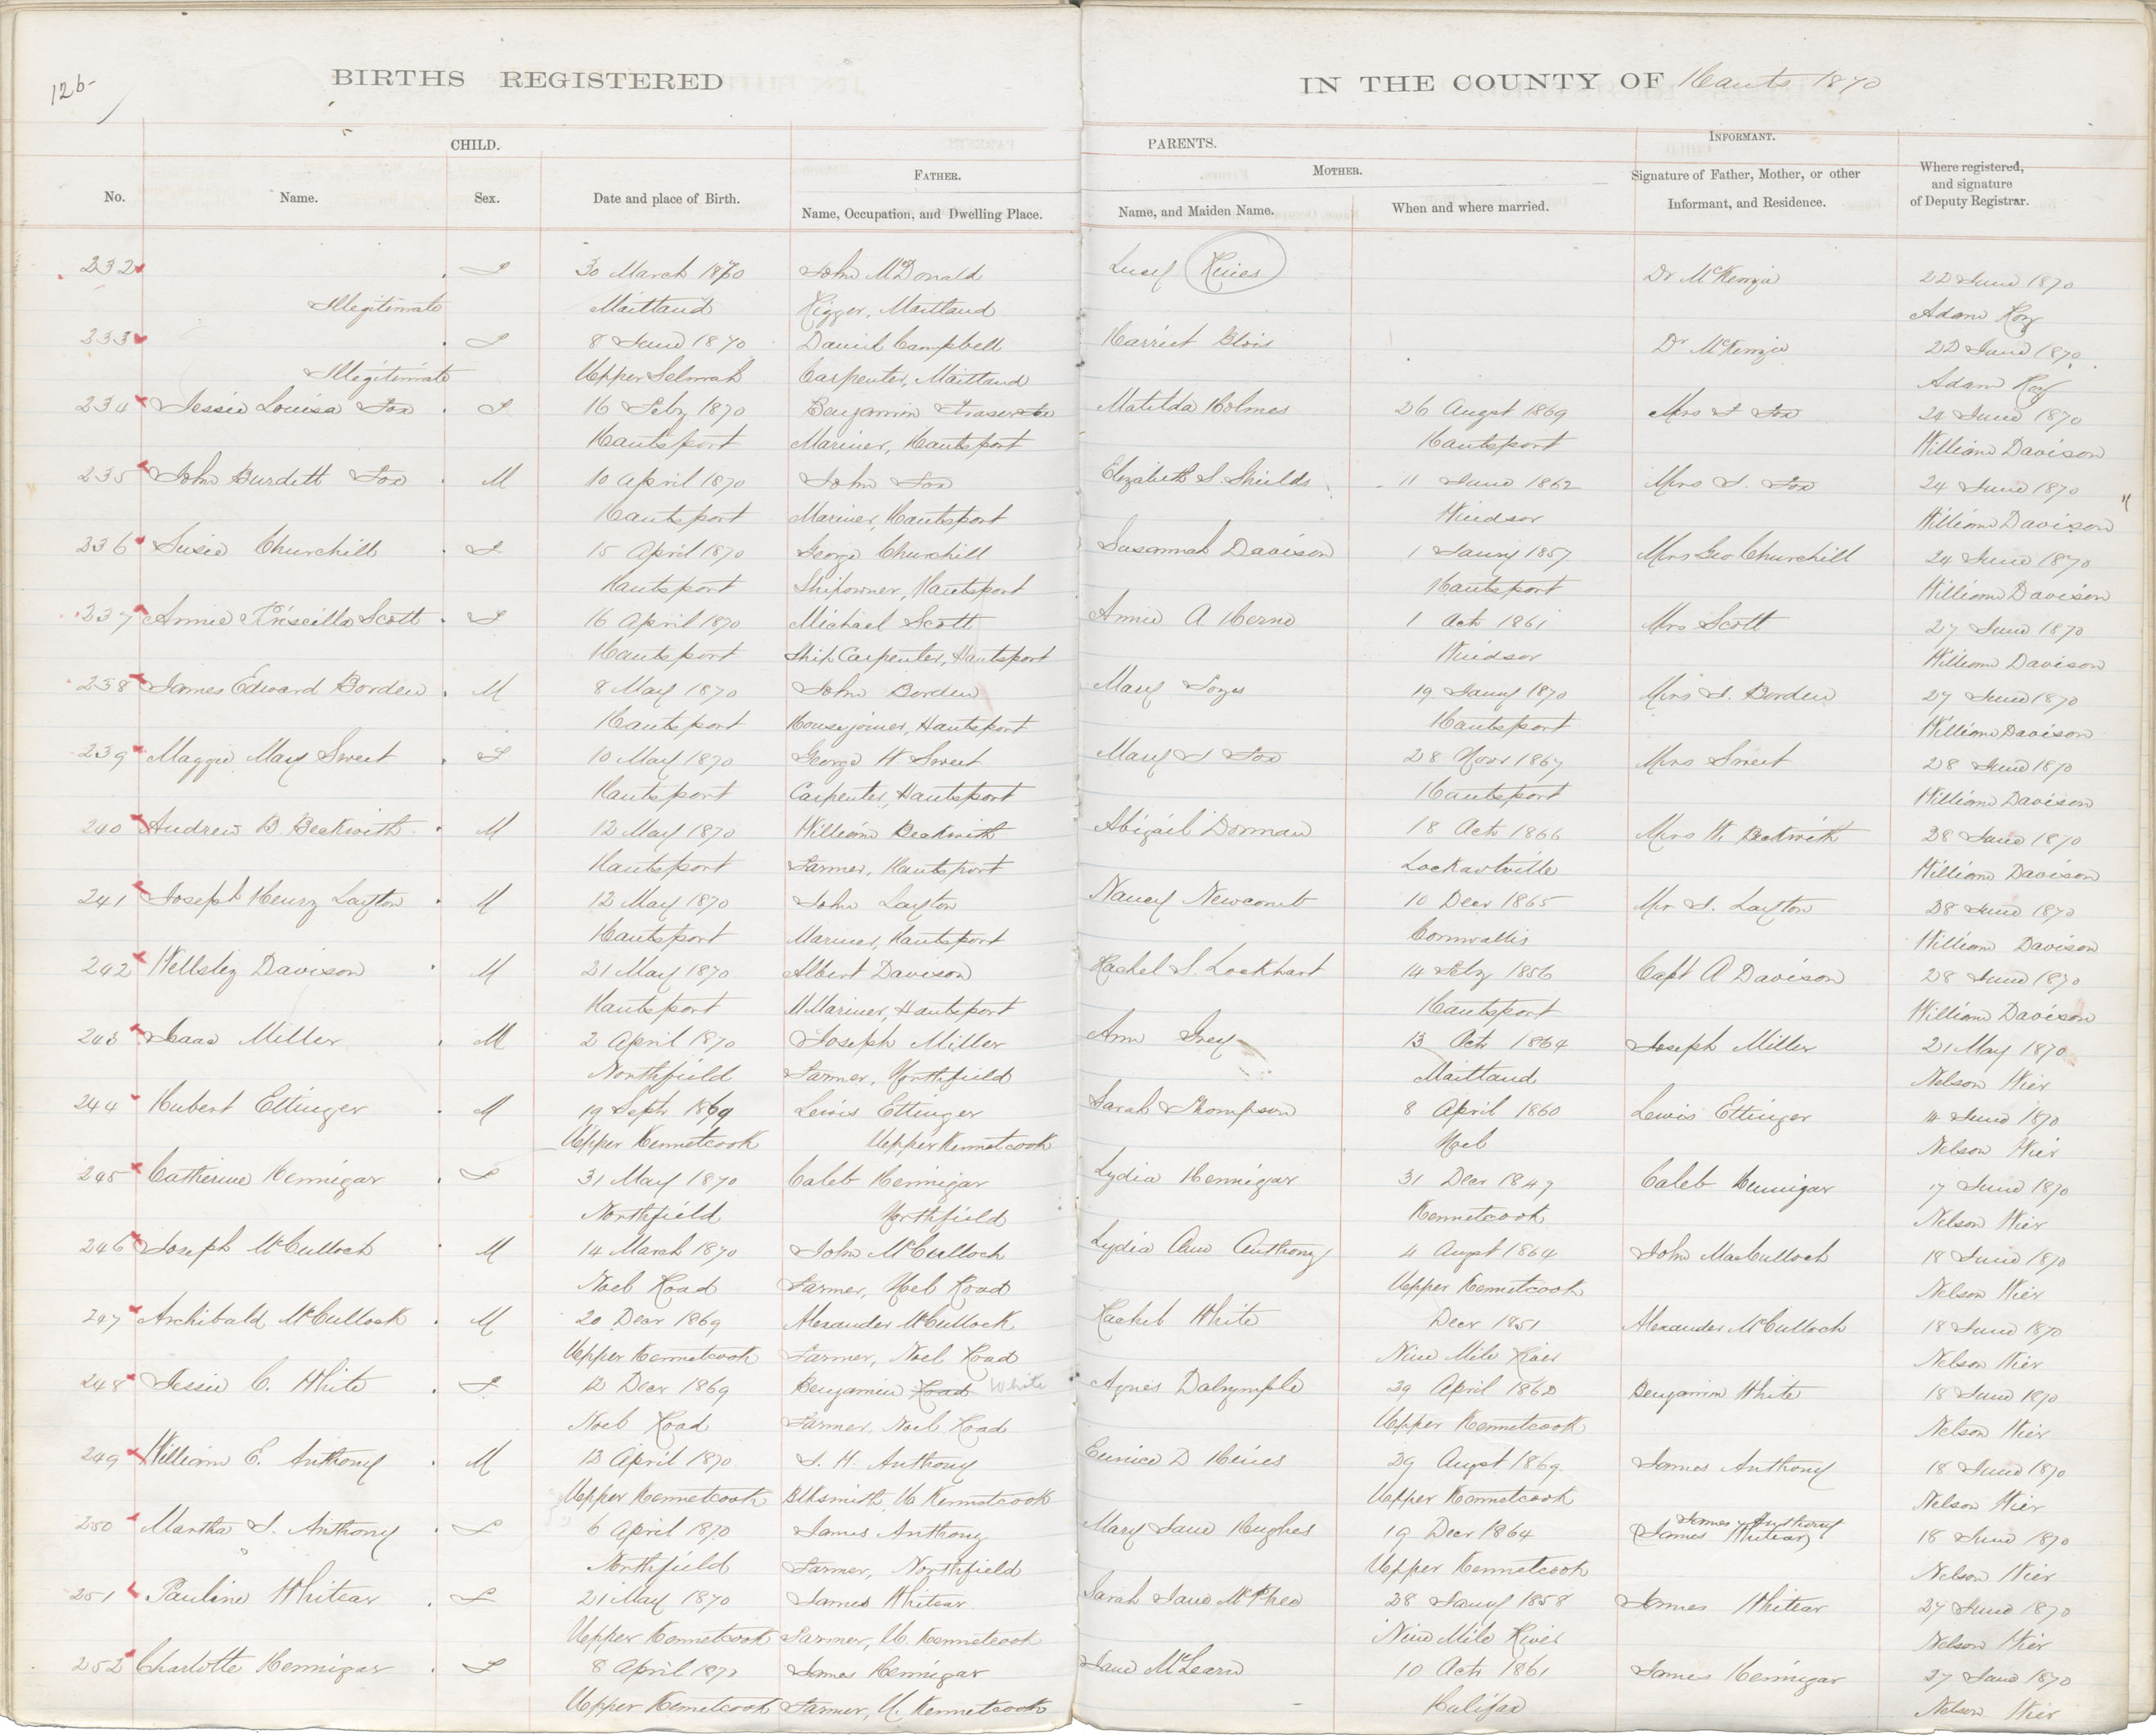 126
BIRTHS REGISTERED IN THE COUNTY OF Hants 1870
CHILD. PARENTS. INFORMANT.
FATHER. MOTHER.
No. Name. Sex. Date and place of Birth. Name, Occupation, and Dwelling Place. Name, and Maiden Name. When and where married. Signature of Father, Mother, or other Informant, and Residence. Where registered, and signature of Deputy Registrar.
232 F 30 March 1870 John McDonald Lucy Hines Dr McKenzie 22 June 1870
Illegitimate Maitland Rigger, Maitland Adam Roy
233 F 8 June 1870 Daniel Campbell Harriet Blois Dr McKenzie 22 June 1870
Illegitimate Upper Selmah Carpenter, Maitland Adam Roy
234 Jessie Louisa Fox F 16 Feby 1870 Benjamin Fraser Fox Matilda Holmes 26 Augst 1869 Mrs F Fox 24 June 1870
Hantsport Mariner, Hantsport Hantsport William Davison
235 John Burdett Fox M 10 April 1870 John Fox Elizabeth S. Shields 11 June 1862 Mrs J. Fox 24 June 1870
Hantsport Mariner, Hantsport Windsor William Davison
236 Susie Churchill F 15 April 1870 George Churchill Susannah Davison 1 Jany 1857 Mrs Geo Churchill 24 June 1870
Hantsport Shipowner, Hantsport Hantsport William Davison
237 Annie Priscilla Scott F 16 April 1870 Michael Scott Annie A Herne 1 Octr 1861 Mrs Scott 27 June 1870
Hantsport Ship Carpenter, Hantsport Windsor William Davison
238 James Edward Borden M 8 May 1870 John Borden Mary 19 Jany 1870 Mrs J. Borden 27 June 1870
Hantsport Housejoiner, Hantsport Hantsport William Davison
239 Maggie May Sweet F 10 May 1870 George H. Sweet Mary J Fox 28 Novr 1867 Mrs Sweet 28 June 1870
Hantsport Carpenter, Hantsport Hantsport William Davison
240 Andrew B. Beckwith M 12 May 1870 William Beckwith Abigail Dorman 18 Octr 1866 Mrs W. Beckwith 28 June 1870
Hantsport Farmer, Hantsport Lockartville William Davison
241 Joseph Henry Layton M 12 May 1870 John Layton Nancy Newcomb 10 Decr 1865 Mr J. Layton 28 June 1870
Hantsport Mariner, Hantsport Cornwallis William Davison
242 Wellsley Davison M 21 May 1870 Albert Davison Rachel S. Lockhart 14 Feby 1856 Capt A Davison 28 June 1870
Hantsport M Mariner, Hantsport Hantsport William Davison
243 Isaac Miller M 2 April 1870 Joseph Miller Ann Grey 13 Octr 1864 Joseph Miller 21 May 1870
Northfield Farmer, Northfield Maitland Nelson Wier
244 Hubert Ettinger M 19 Septr 1869 Lewis Ettinger Sarah Thompson 8 April 1860 Lewis Ettinger 14 June 1870
Upper Kennetcook Upper Kennetcook Noel Nelson Wier
245 Catherine Hennigar F 31 May 1870 Caleb Hennigar Lydia Hennigar 31 Decr 1847 Caleb Hennigar 17 June 1870
Northfield Northfield Kennetcook Nelson Wier
246 Joseph McCulloch M 14 March 1870 John McCulloch Lydia Ann Anthony 4 Augst 1864 John MacCulloch 18 June 1870
Noel Road Farmer, Noel Road Upper Kennetcook Nelson Wier
247 Archibald McCullock M 20 Decr 1869 Alexander McCullock Rachel White Decr 1851 Alexander McCulloch 18 June 1870
Upper Kennetcook Farmer, Noel Road Nine Mile River Nelson Wier
248 Jessie C. White F 12 Decr 1869 Benjamin Road White Agnes Dalrymple 29 April 1862 Benjamin White 18 June 1870
Noel Road Farmer, Noel Road Upper Kennetcook Nelson Wier
249 William E. Anthony M 12 April 1870 J. H. Anthony Eunice D Hines 29 Augst 1869 James Anthony 18 June 1870
Upper Kennetcook Blksmith, U Kennetcook Upper Kennetcook Nelson Wier
250 Martha J. Anthony F 6 April 1870 James Anthony Mary Jane Hughes 19 Decr 1864 James Anthony (James Whitear) 18 June 1870
Northfield Farmer, Northfield Upper Kennetcook Nelson Wier
251 Pauline Whitear F 21 May 1870 James Whitear Sarah Jane McPhee 28 Jany 1858 James Whitear 27 June 1870
Upper Kennetcook Farmer, U. Kennetcook Nine Mile River Nelson Wier
252 Charlotte Hennigar F 8 April 1870 James Hennigar Jane McLearn 10 Octr 1861 James Hennigar 27 June 1870
Upper Kennetcook Farmer, U. Kennetcook Halifax Nelson Wier